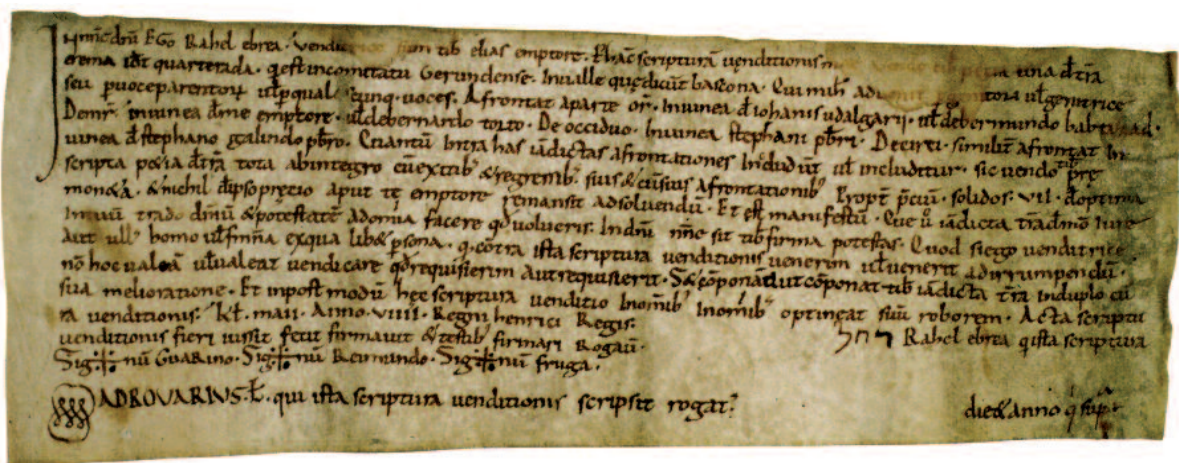 In nne dnī. Ego Rahel ebrea. venditrice sum tibi elias emptore. P hāc scripturā venditionis una d̄ t̄ra
erema id̄t quarterada. q̄ est in comitatu Gerundense. In ville que dicūt bascona. Qui mihi ad genitore ul̄ genitrice
seu p voce parentorꝝ ul̄ p qual cunq voces. Afrontat a parte or̄. In vinea d̄ iohanis udalgarii. ul̄ de bermundo
Demr̄. in vinea d̄ me emptore. ul̄ de bernardo torto. De occiduo. In vinea stephani pb̄ri. De circi. similit̄ afrontat in
vinea d̄ stephano galindo pb̄ro. Quantū Intra has iādictas afrontationes Includunt ul̄ includitur. sic vendo tibi
scripta pecia d̄ t̄ra tota ab integro cū exitib; & regressib; suis & cū suis afrontationib; Propt̄ p̄ciū. solidos. VII. d̄ optima
moneta. & nichil d̄ ipso precio aput te emptore remansit ad solvendū. Et est manifestū. Que ū iādicta t̄ra d̄ meo iure
In tuū trado dn̄iū & potestatē ad omnia facere qd̄ volueris. In dn̄i nn̄e sit tibi firma potestas. Quod si ego venditrice
aut ull; homo ul̄ femn̄a ex qua lib& p̄sona. q cōtra ista scriptura venditionis venerim ul̄ venerit ad irrumpendū.
nō hoc valeā ul̄ valeat vendicare qd̄ requisierim aut requisierit. S& cōponā aut cōponat tibi iādicta t̄ra in duplo cū
sua melioratione. Et in post modū hęc scriptura venditio In om̄ib; In om̄ib; optineat suū roborem. Acta scriptu
ra venditionis. kl̄. maii. Anno. VIIII. Regni henrici Regis. רחל Rahel ebrea q ista scriptura
venditionis fieri iussit fecit firmavit & testib; firmari Rogav̄.
Sig+nū Guarino. Sig+nū Reimundo. Sig+nū fruga.
ADROVARIUS. ł. qui ista scriptura venditionis scripsit rogat; die & anno q sup̄